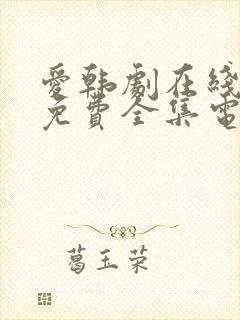 愛韩劇在綫
免費全集電
葛玉荣